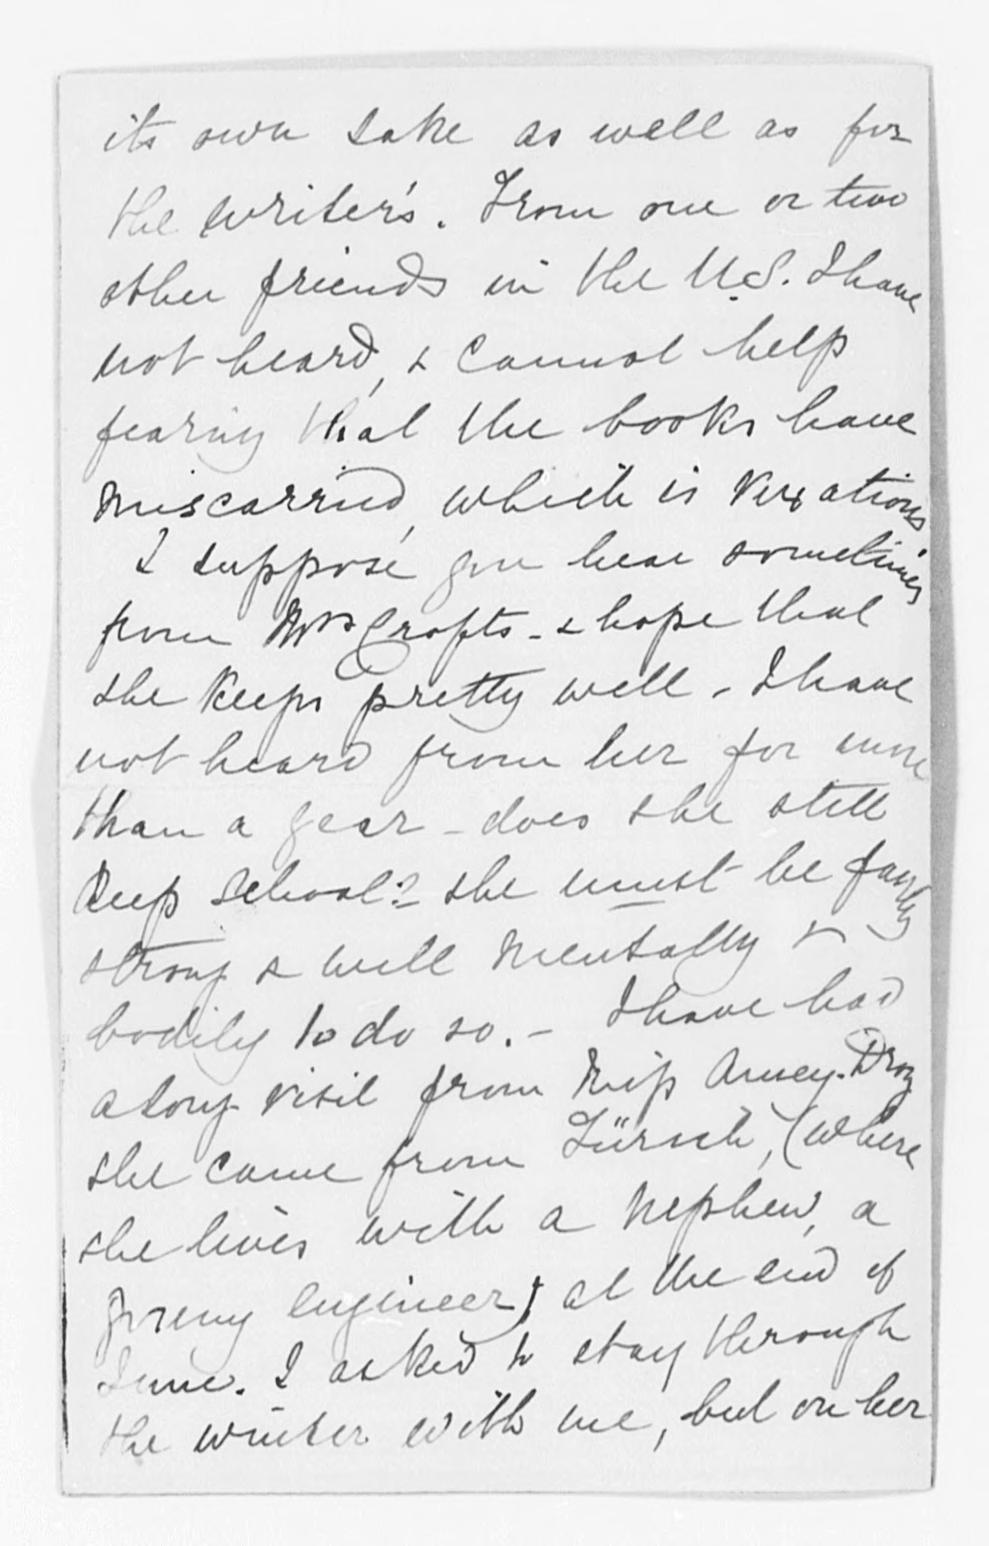 its own sake as well as for
the writer's. From one or two
other friends in the U.S. I have
not heard, & cannot help
fearing that the books have
miscarried, which is vexatious
I suppose you hear sometimes
from Mrs Crofts - & hope that
she keeps pretty well - I have
not heard from her for more
than a year - does she still
keep school? she must be fairly
strong & well mentally &
bodily to do so. - I have had
a long visit from Miss Amey-Droz
she came from Zürich, (where
she lives with a nephew, a
young engineer) at the end of
June. I asked to stay through
the winter with me, but on her